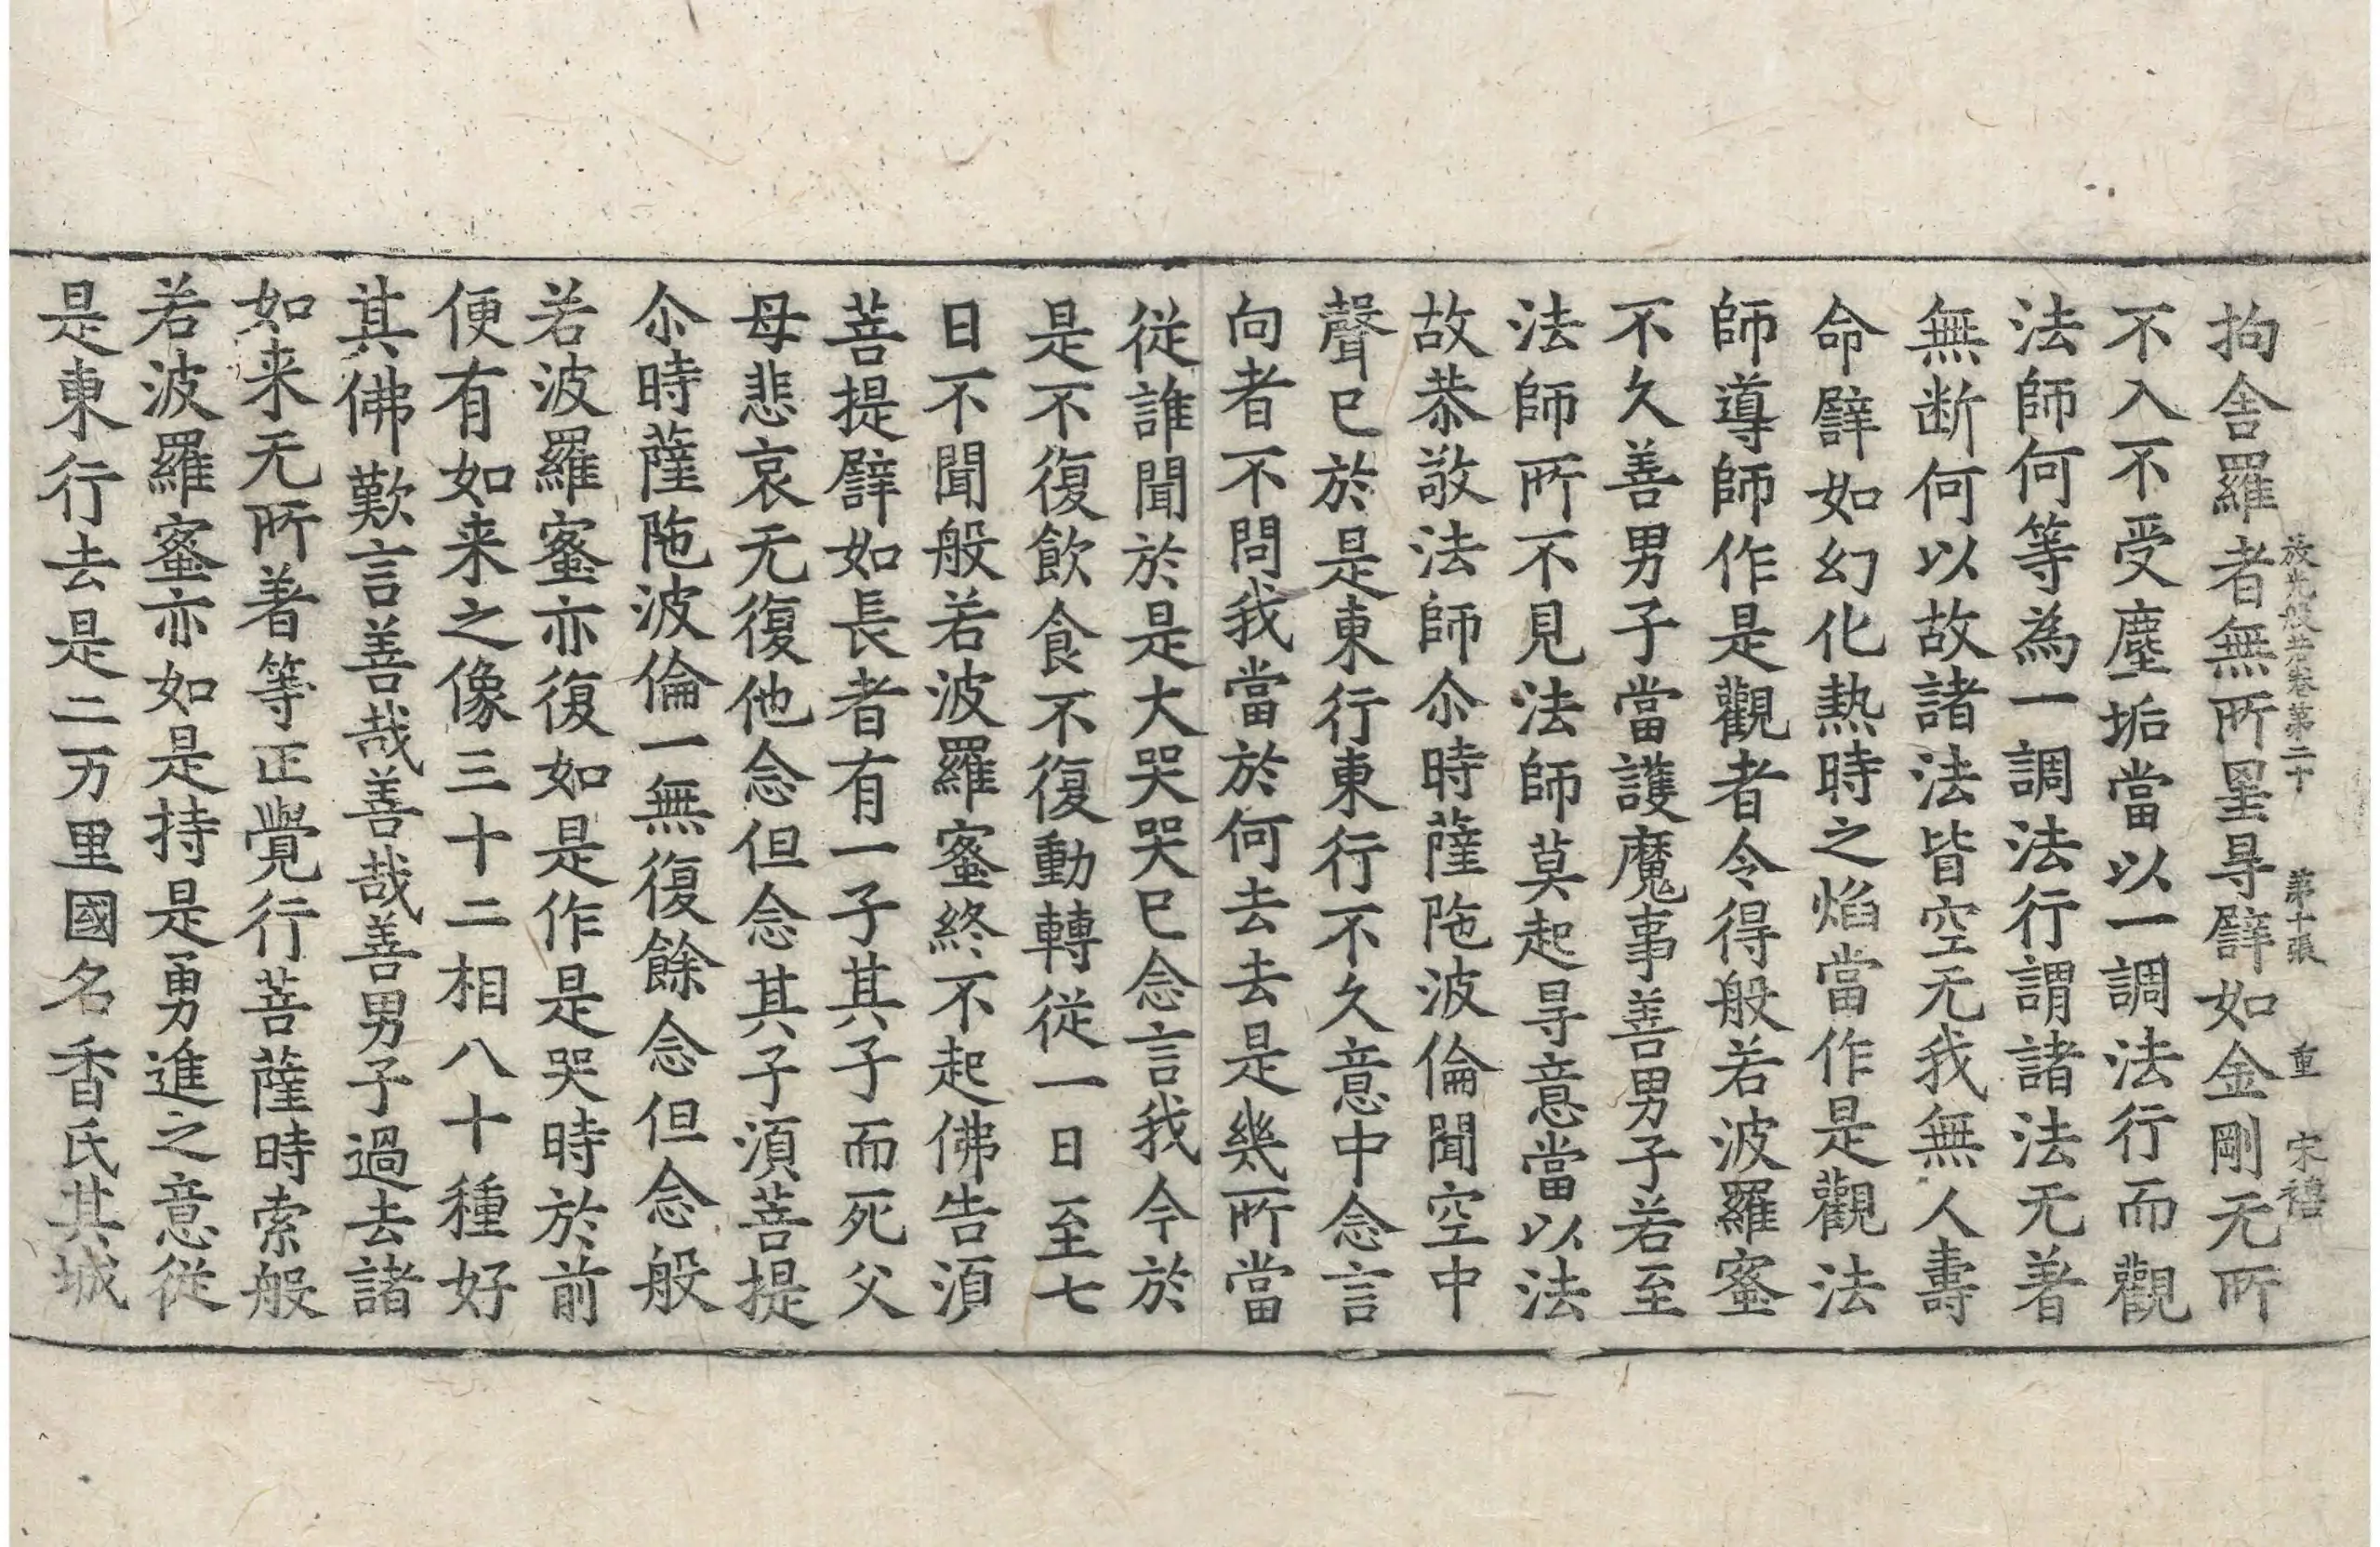 放光般若經卷第二十 第十張 重 宋禧
拘舍羅者無所罣㝵譬如金剛无所
不入不受塵垢當以一調法行而觀
法師何等為一調法行謂諸法无著
無断何以故諸法皆空无我無人壽
命譬如幻化热時之焰當作是觀法
師導師作是觀者令得般若波羅蜜
不久善男子當護魔事善男子若至
法師所不見法師莫起㝵意當以法
故恭敬法師尒時薩陁波倫聞空中
聲已於是東行東行不久意中念言
向者不問我當於何去去是幾所當
從誰聞於是大哭哭已念言我今於
是不復飲食不復動轉從一日至七
日不聞般若波羅蜜終不起佛告湏
菩提譬如長者有一子其子而死父
母悲哀无復他念但念其子湏菩提
尒時薩陁波倫一無復餘念但念般
若波羅蜜亦復如是作是哭時於前
便有如来之像三十二相八十種好
其佛歎言善哉善哉善男子過去諸
如来无所著等正覺行菩薩時索般
若波羅蜜亦如是持是勇進之意從
是東行去是二万里國名香氏其城